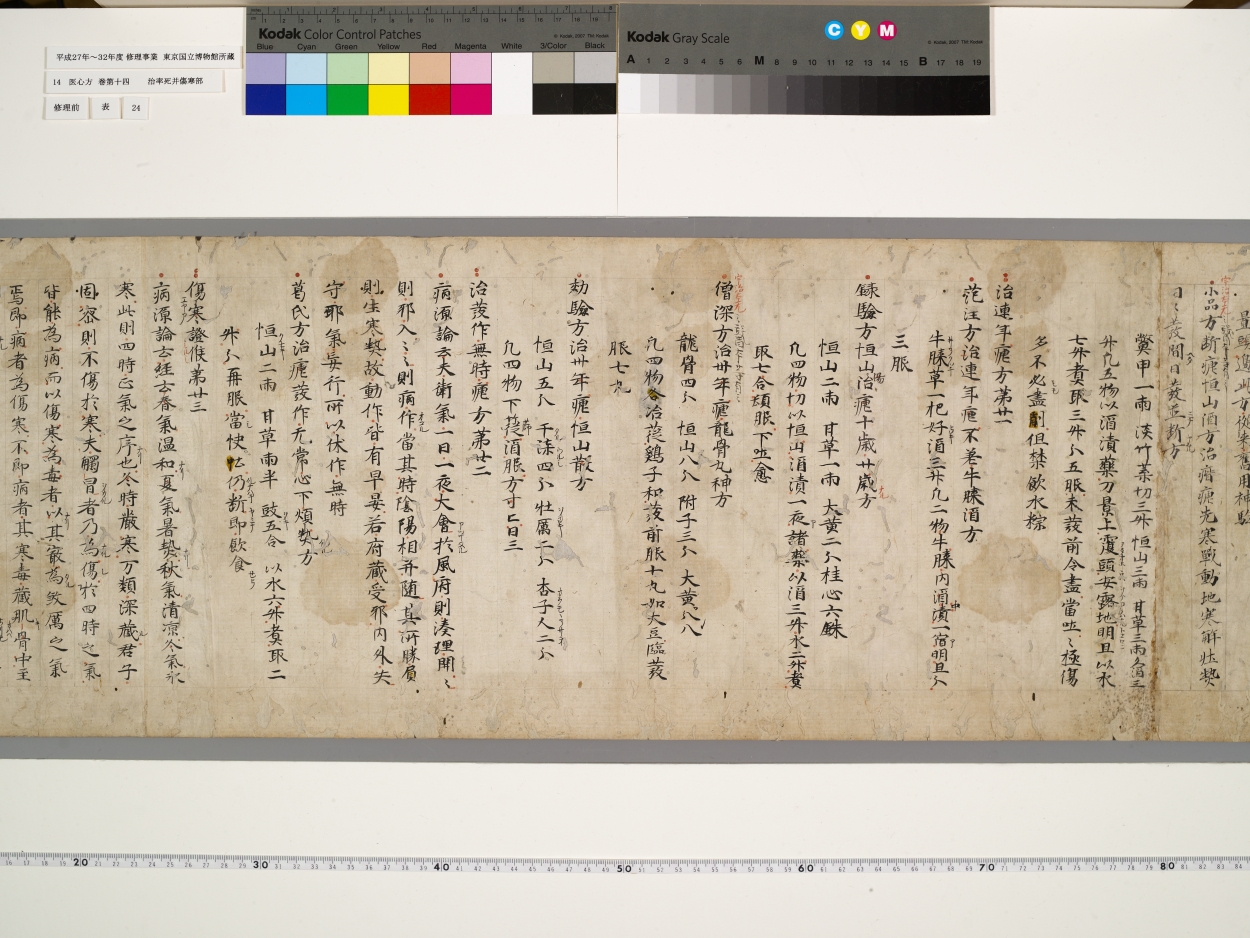 平成27年~32年度 修理事業 東京国立博物館所蔵
14 医心方 巻第十四 治卒死并傷寒部
修理前 表 24
Kodak Color Control Patches
Blue Cyan Green Yellow Red Magenta White 3/Color Black
Kodak Gray Scale
C Y M
A 1 2 3 4 5 6 M 8 9 10 11 12 13 14 15 B 17 18 19
小品方断瘧恒山酒方治瘖瘧先寒戰動地寒解壮熱
日〻發間日發並断方
鱉甲一兩 淡竹葉切三升 恒山三兩 甘草三兩
升凡五物以酒漬藥万景上覆頭安露地明旦以水
七升煮取三升分五服未發前令盡當吐〻極傷
多不必盡劑但禁飲水粽
治連年瘧方第廿一
范汪方治連年瘧不差牛膝酒方
牛膝草一把好酒三升凡二物牛膝内酒漬一宿明旦分
三服
録驗方恒山湯治瘧十歳廿歳方
恒山二兩 甘草一兩 大黄二分 桂心六銖
凡四物切以恒山酒漬一夜諸藥以酒三升水二升煮
取七合頓服下吐愈
僧深方治卅年瘧龍骨丸神方
龍骨四分 恒山八分 附子三分 大黄八分
凡四物合治篩鷄子和發前服十丸如大豆臨發
服七丸
勅驗方治卅年瘧恒山散方
恒山五分 干漆四分 牡厲二分 杏子人二分
凡四物下篩酒服方寸匕日三
治發作無時瘧方第廿二
病源論云夫衛氣一日一夜大會於風府則湊理開〻
則邪入〻則病作當其時陰陽相并随其所勝負
則生寒熱故動作皆有早晏若府藏受邪内外失
守耶氣妄行所以休作無時
葛氏方治瘧發作无常心下煩熱方
恒山二兩 甘草兩半 豉五合 以水六升煮取二
升分再服當快吐仍断即飲食
傷寒證候第廿三
病源論云經云春氣温和夏氣暑熱秋氣清凉冬氣氷
寒此則四時正氣之序也冬時嚴寒万類深藏君子
固密則不傷於寒夫觸冒者乃為傷於四時之氣
皆能為病而以傷寒為毒者以其最為煞厲之氣
焉即病者為傷寒不即病者其寒毒藏肌骨中至